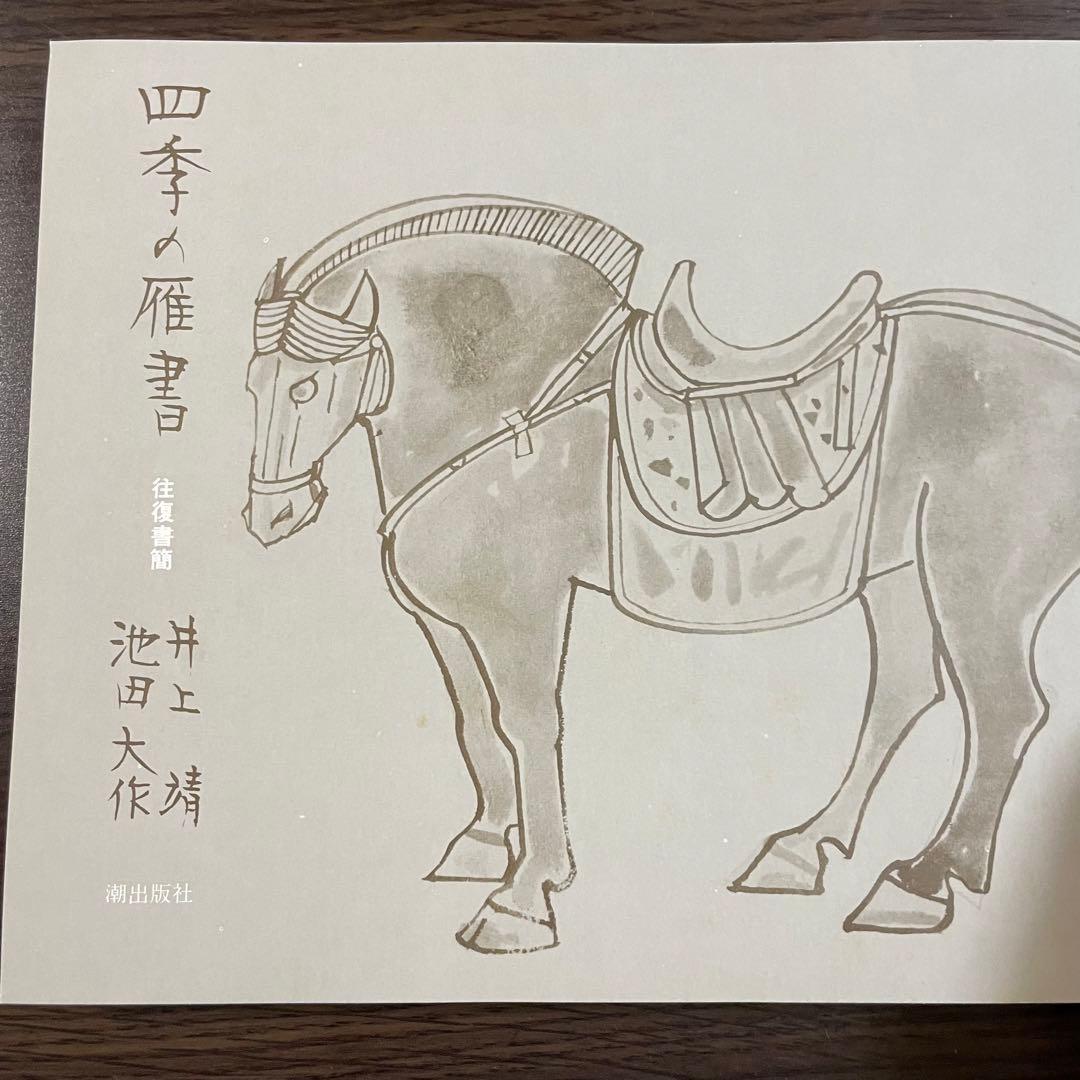 四季の雁書
往復書簡
井上靖
池田大作
潮出版社